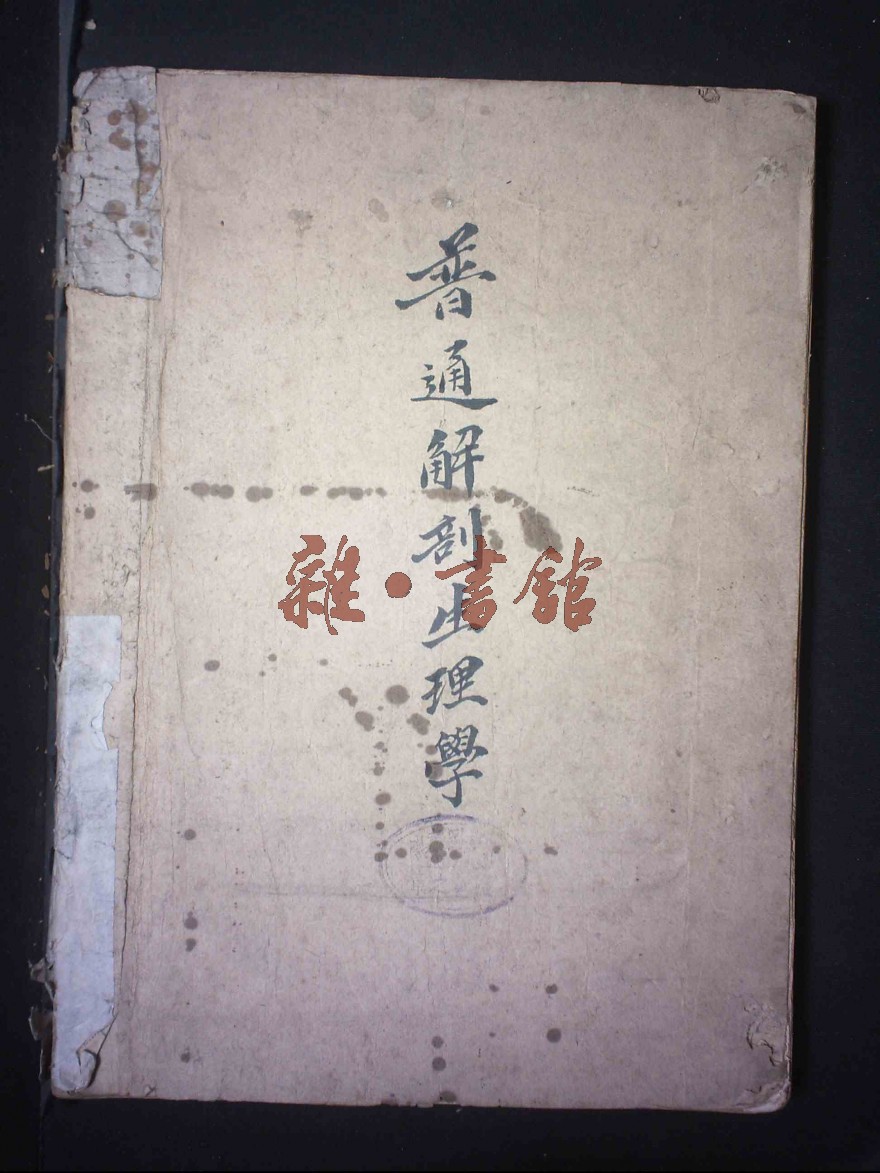 普通解剖生理學
雜·書館